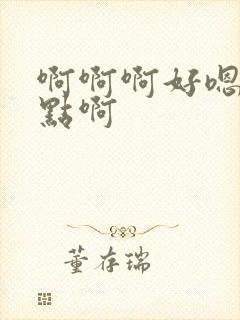 啊啊啊好嗯
點啊
董存瑞